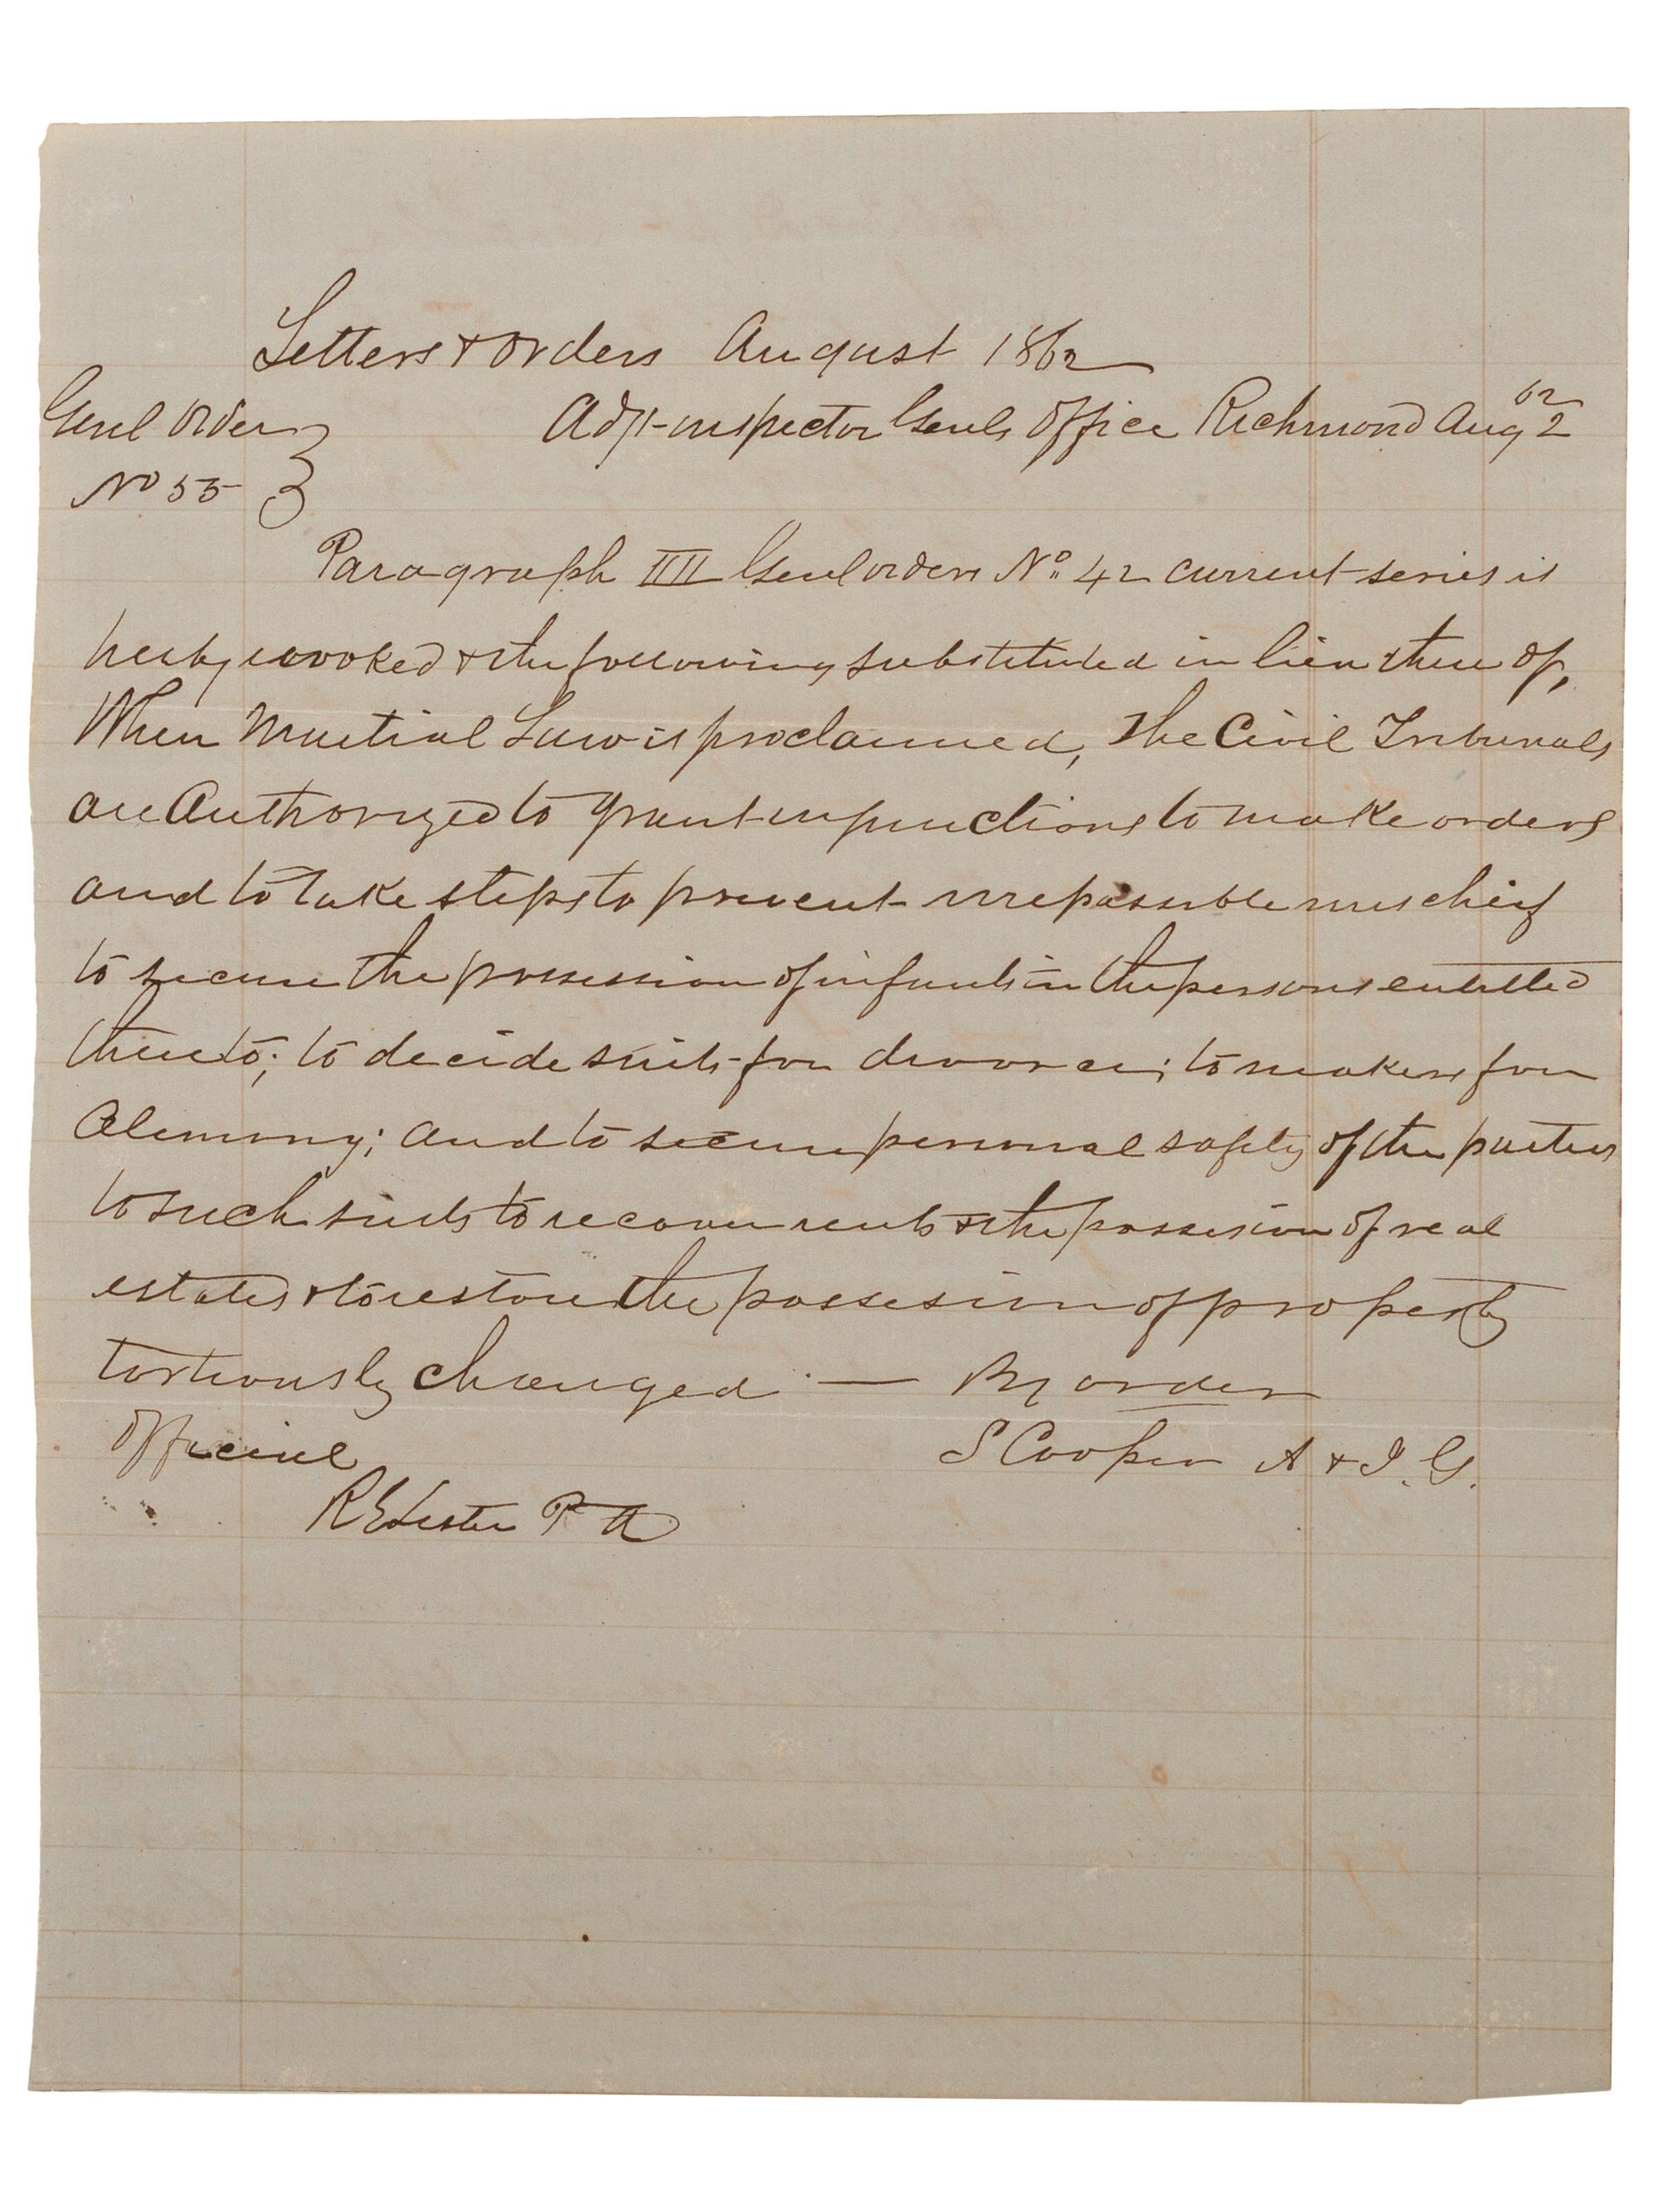 Letters & orders August 1862
Genl Order Adjt-inspector Genls office Richmond Aug 62 2
No 55
Paragraph IIII Genl orders No. 42 current series is
hereby revoked & the following substituted in lieu there of,
When Martial Law is proclaimed, The Civil Tribunals
are Authorized to grant injunctions to make orders
and to take steps to prevent irrepassible mischief
to secure the possession of infants in the persons entitled
thereto; to decide suits for divorce; to make for
Alimony; and to secure personal safety of the parties
to such suits to recover rents & the possesion of real
estates & to restore the possession of property
tortiously changed — By order
Official S Cooper A & I. G.
R E Lester